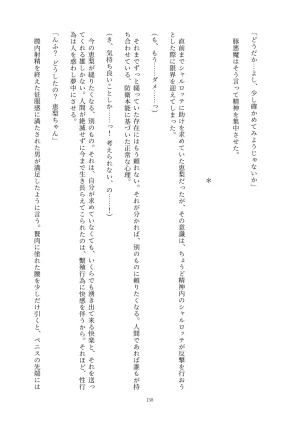 「どうだか…よし、少し確かめてみようじゃないか」
豚悪魔はそう言って精神を集中させた。
＊
直前までシャルロッテに助けを求めていた恵梨だったが、その意識は、ちょうど精神内のシャルロッテが反撃を行おう
とした際に限界を迎えてしまった。
（も、もう……ダメ……っ）
それまでずっと縋っていた存在にはもう頼れない。それが分かれば、別のものに頼りたくなる。人間であれば誰もが持
ち合わせている、防衛本能に基づいた正常な心理。
（き、気持ち良いことしか……！ 考えられない、の……！）
今の恵梨が縋りたくなる、別のもの。それは、自分が求めていなくても、いくらでも湧き出て来る快楽と、それを送っ
てくれる雄しかない。人間が絶滅せずに今まで生き長らえてこられたのは、繁殖行為に快感を伴うから。それほど、性行
為は人を惑わし夢中にさせる。
「んふ？ どうしたの？ 恵梨ちゃん」
膣内射精を終えた征服感に満たされた男が満足したように言う。贅肉に塗れた腰を少しだけ引くと、ペニスの先端には
138